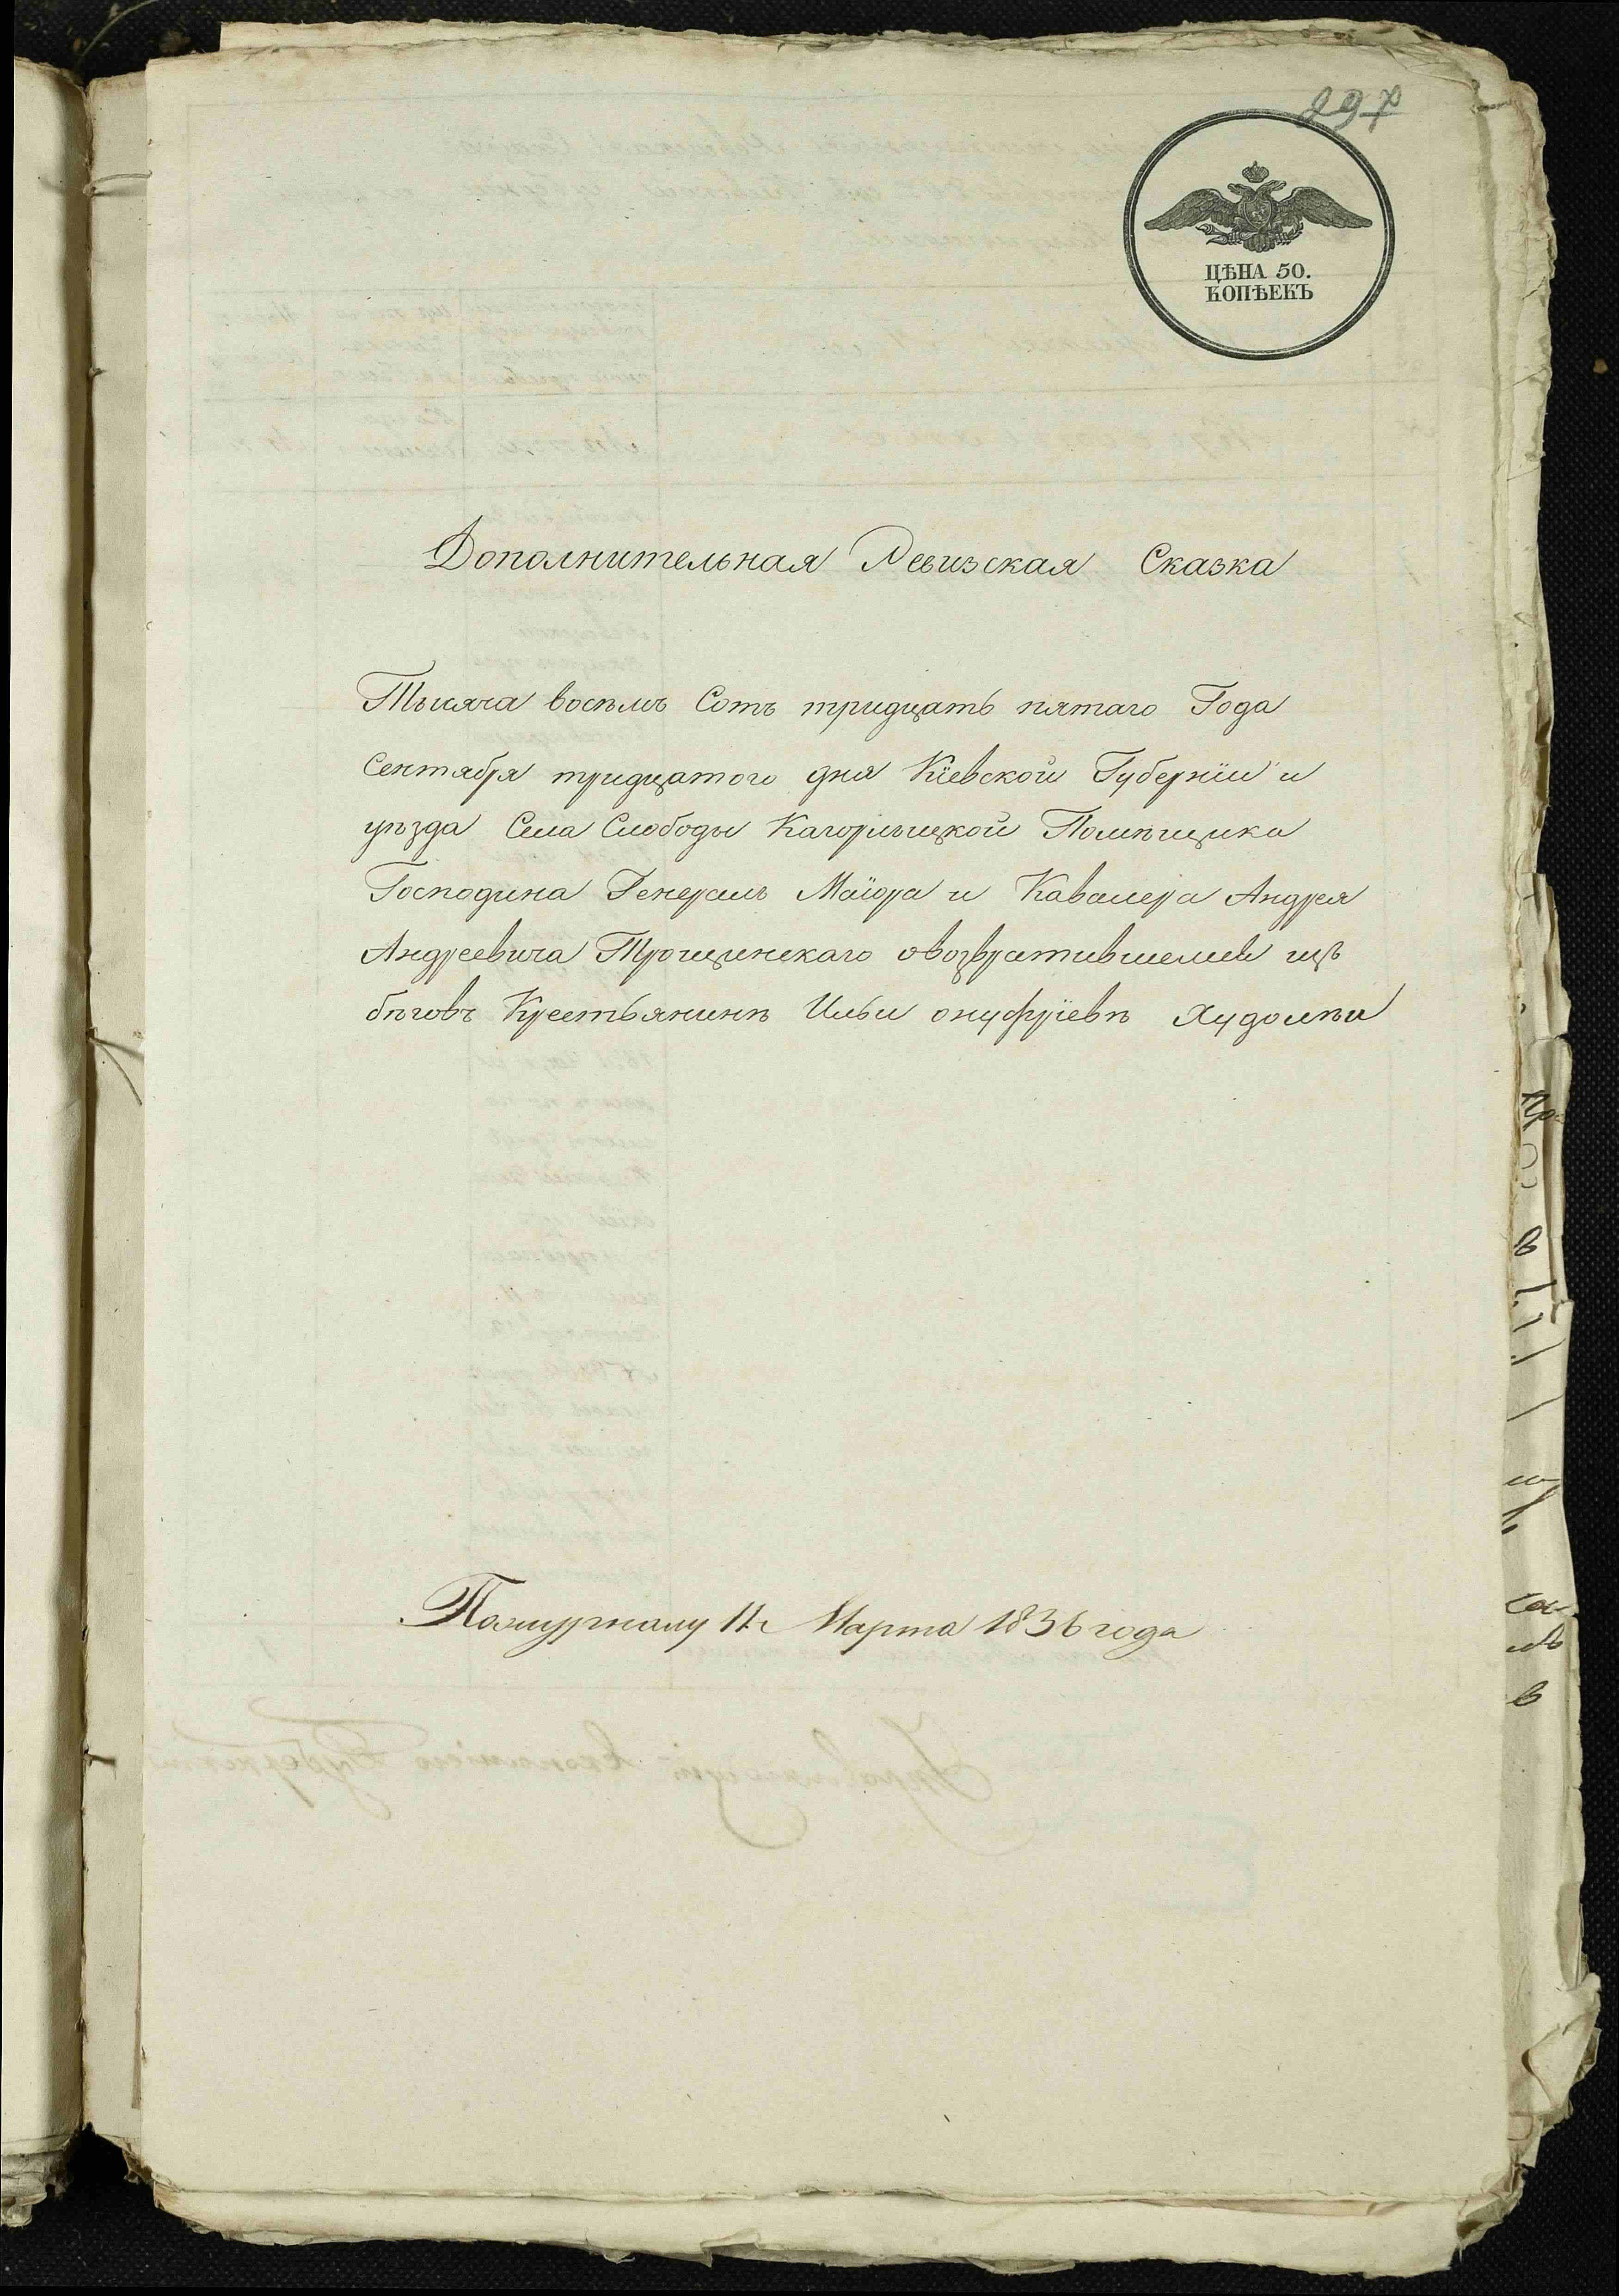 297
ЦѢНА 50.
КОПѢЕКЪ
Дополнительная Ревизская Сказка
Тысяча восемъ Сотъ тридцать пятаго Года
Сентября тридцатого дня Кіевской Губерніи и
уѣзда Села Слободы Кагорлыцкой Помѣщика
Господина Генералъ Маіора и Кавалера Андрея
Андреевича Трощинскаго овозвратившемся изъ
бѣговъ Крестьянинѣ Ильи онуфріевѣ Худолѣи
Пожурналу 11 Марта 1836 года